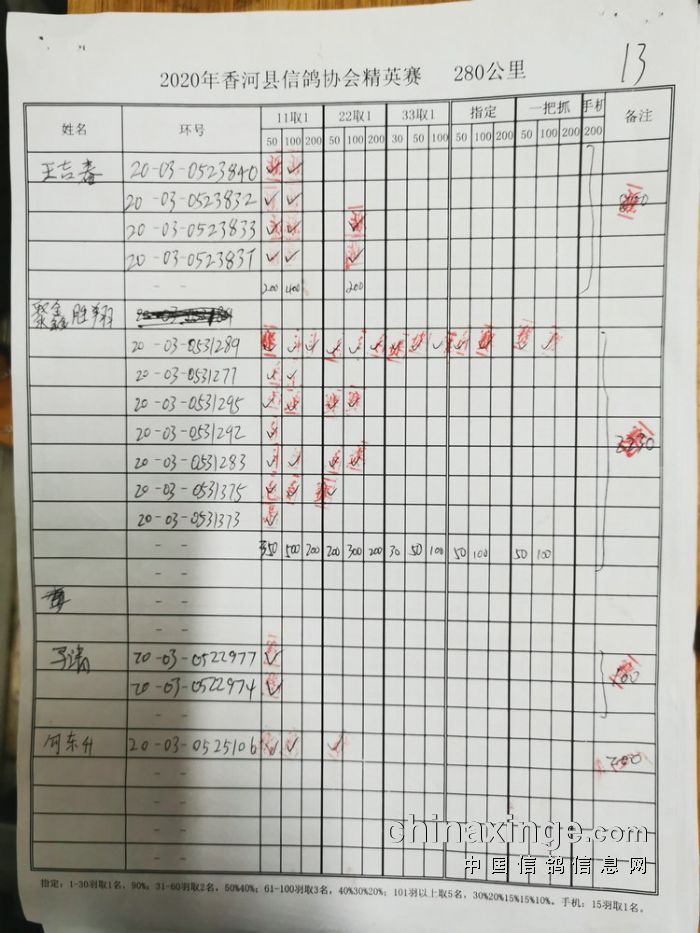 13
2020年香河县信鸽协会精英赛 280公里
姓名 环号 11取1 22取1 33取1 指定 一把抓 手机 备注
50 100 200 50 100 200 30 50 100 50 100 200 50 100 200 200
王吉春 20-03-0523840 ✓ ✓
20-03-0523832 ✓ ✓
20-03-0523833 ✓ ✓ ✓
20-03-0523837 ✓ ✓ ✓
-- 200 400 200
聚鑫胜翔
20-03-0531289
20-03-0531277 ✓ ✓
20-03-0531295 ✓ ✓ ✓ ✓
20-03-0531292 ✓
20-03-0531283 ✓ ✓ ✓ ✓
20-03-0531375 ✓ ✓ ✓
20-03-0531373 ✓
-- 350 500 200 200 300 200 30 50 100 50 100 50 100
--
--
20-03-0522977 ✓
20-03-0522974 ✓ 100
--
何东升 20-03-0525106 ✓ ✓ ✓ 200
--
--
--
--
指定：1-30羽取1名，90%；31-60羽取2名，50%40%；61-100羽取3名，40%30%20%；101羽以上取5名，30%20%15%15%10%。手机：15羽取1名。
chinaxinge.com
中国信鸽信息网